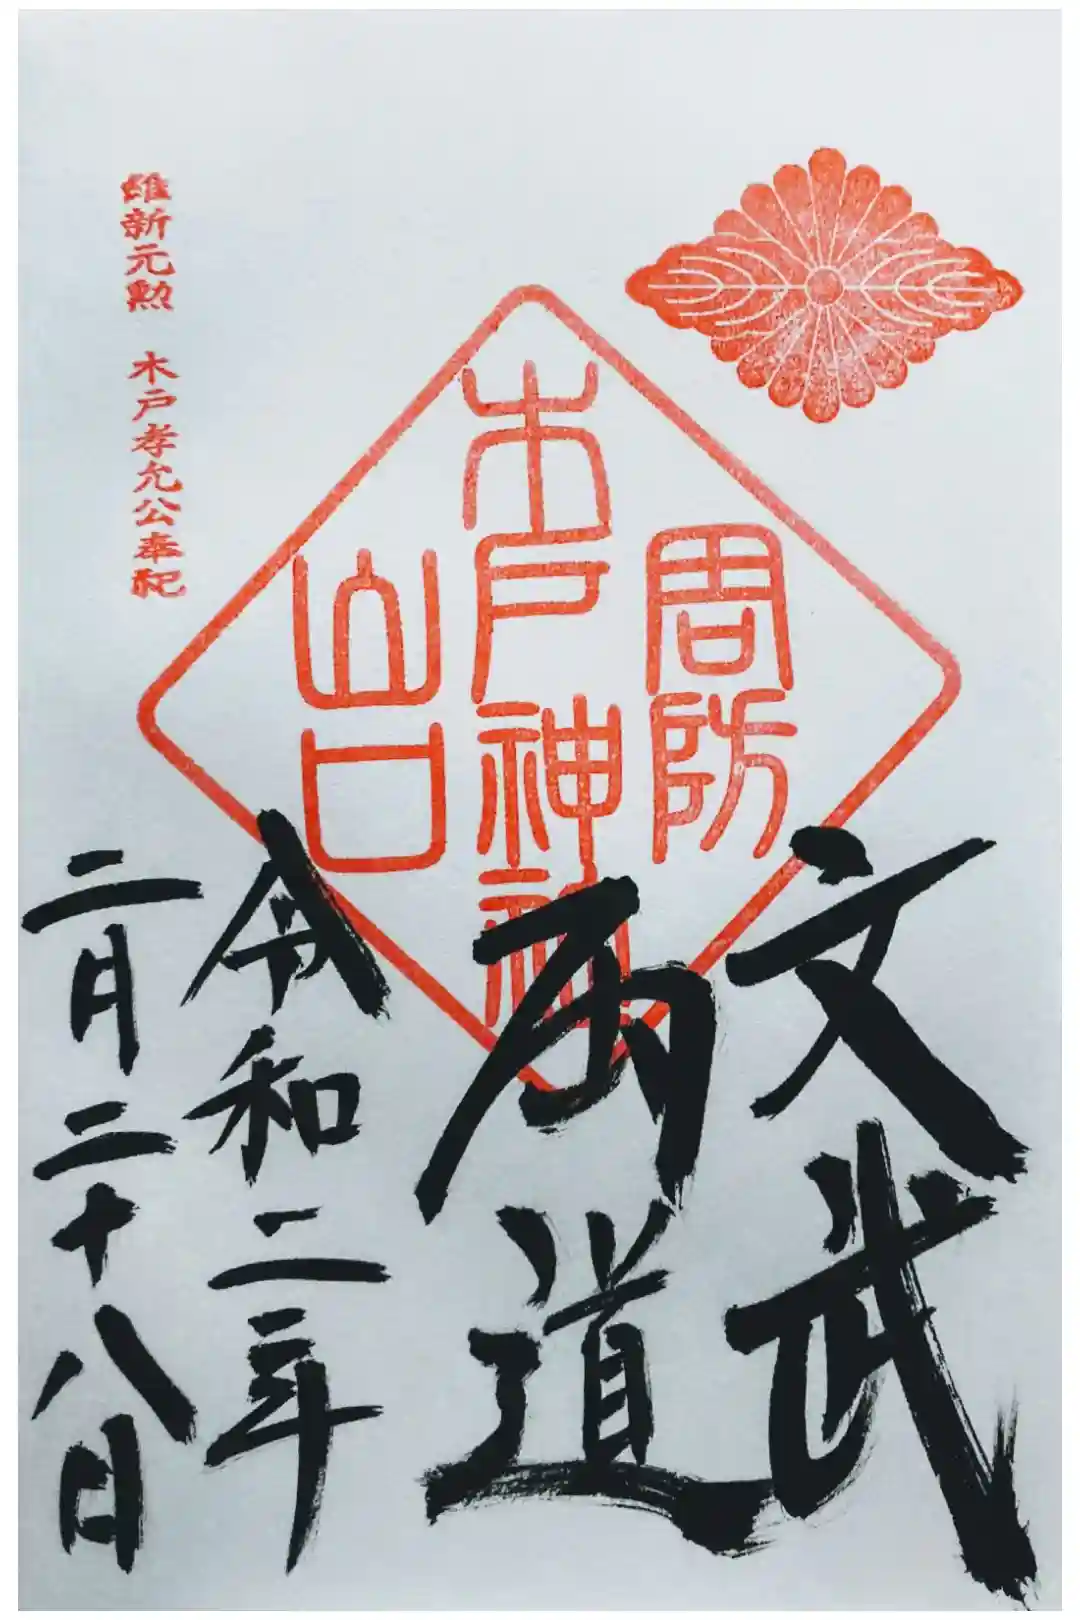 文武
両道
令和二年
二月二十八日
周防
木戸神社
山口
維新元勲 木戸孝允公奉祀